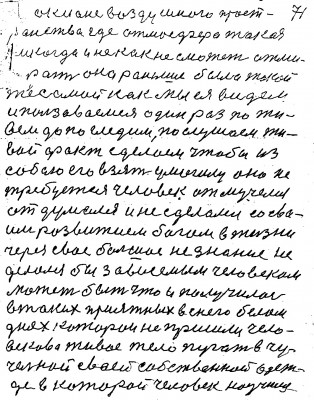 океане воздушного прост- 71
ранства где атмосфера такая
никогда и некак не сможет отми-
рать она раньше была такой
же самой как мы ея видем
и ползоваемся один раз по жи-
вем до последим, послушаем жи-
вой факт сделаем чтобы из
собою его взять умолить оно не
требуется человек от мучился
от думался и не сделали со сва-
им розвитием богом в жизни
через свое болшое не знание не
делали бы зависемым человекам
может быть что и получилос
в таких приятных в снего белом
днях которои не пришли чело-
векова живое тело пугать в чу-
челной своей собственной одеж-
де в которой человек научил